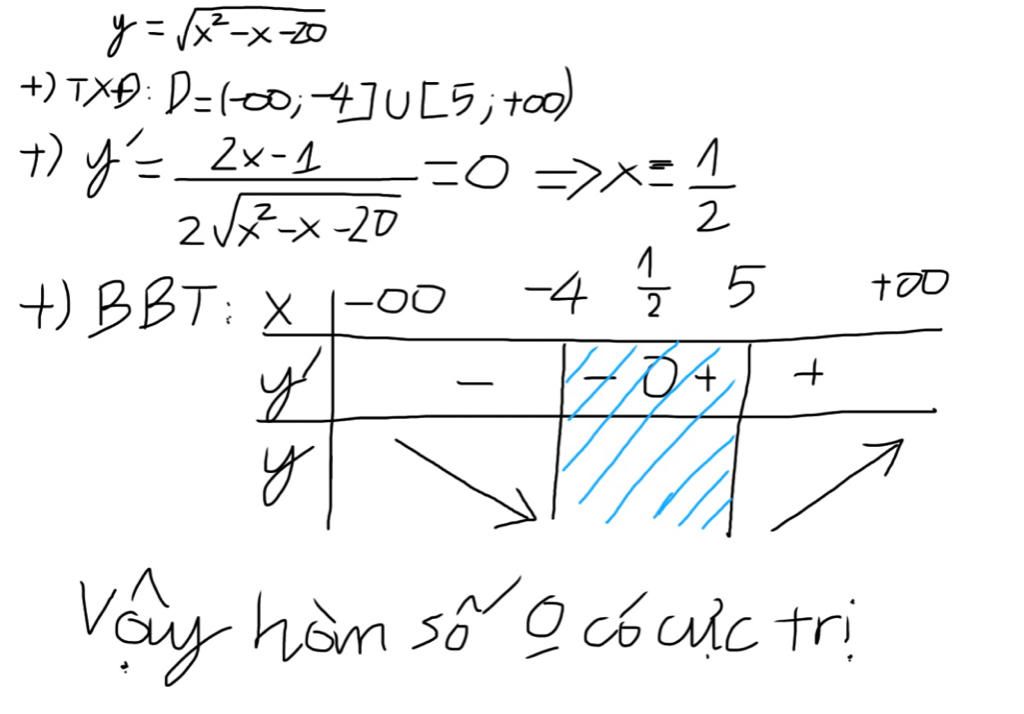 y = √x²-x-20
+) TXĐ: D=(-∞;-4]∪[5;+∞)
+) y' = 2x-1 / 2√x²-x-20 = 0 => x = 1/2
+) BBT: x -∞ -4 1/2 5 +∞
y' - - 0 + +
y
Vậy hàm số 0 có cực trị